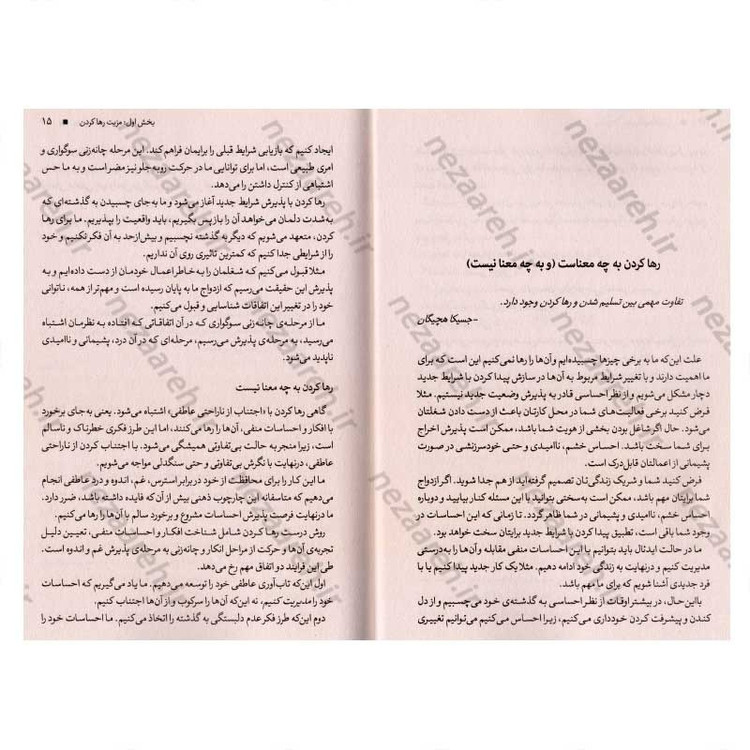 رها کردن به چه معناست (و به چه معنا نیست)
تفاوت مهمی بین تسلیم شدن و رها کردن وجود دارد.
-جسیکا هچیگان
علت این‌که ما به برخی چیزها چسبیده‌ایم و آن‌ها را رها نمی‌کنیم این است که برای
ما اهمیت دارند و با تغییر شرایط مربوط به آن‌ها در سازش پیدا کردن با شرایط جدید
دچار مشکل می‌شویم و از نظر احساسی قادر به پذیرش وضعیت جدید نیستیم. مثلا
فرض کنید برخی فعالیت‌های شما در محل کارتان باعث از دست دادن شغلتان
می‌شود. حال اگر شاغل بودن بخشی از هویت شما باشد، ممکن است پذیرش اخراج
برای شما سخت باشد. احساس خشم، ناامیدی و حتی خودسرزنشی در صورت
پشیمانی از اعمالتان قابل‌درک است.
فرض کنید شما و شریک زندگی‌تان تصمیم گرفته‌اید از هم جدا شوید. اگر ازدواج
شما برایتان مهم باشد، ممکن است به‌سختی بتوانید با این مسئله کنار بیایید و دوباره
احساس خشم، ناامیدی و پشیمانی در شما ظاهر گردد. تا زمانی که این احساسات در
وجود شما باقی است، تطبیق پیدا کردن با شرایط جدید برایتان سخت خواهد بود.
ما در حالت ایدئال باید بتوانیم با این احساسات منفی مقابله و آن‌ها را به‌درستی
مدیریت کنیم و درنهایت به زندگی خود ادامه دهیم. مثلا یک کار جدید پیدا کنیم یا با
فرد جدیدی آشنا شویم که برای ما مهم باشد.
بااین‌حال، در بیشتر اوقات از نظر احساسی به گذشته‌ی خود می‌چسبیم و از دل
کندن و پیشرفت کردن خودداری می‌کنیم، زیرا احساس می‌کنیم می‌توانیم تغییری
بخش اول: مزیت رها کردن ■ ۱۵
ایجاد کنیم که بازیابی شرایط قبلی را برایمان فراهم کند. این مرحله چانه‌زنی سوگواری و
امری طبیعی است، اما برای توانایی ما در حرکت روبه‌جلو نیز مضر است و به ما حس
اشتباهی از کنترل داشتن را می‌دهد.
رها کردن با پذیرش شرایط جدید آغاز می‌شود و ما به‌جای چسبیدن به گذشته‌ای که
به‌شدت دلمان می‌خواهد آن را بازپس بگیریم، باید واقعیت را بپذیریم. ما برای رها
کردن، متعهد می‌شویم که دیگر به گذشته نچسبیم و بیش‌ازحد به آن فکر نکنیم و خود
را از شرایطی جدا کنیم که کمترین تاثیری روی آن نداریم.
مثلا قبول می‌کنیم که شغلمان را به‌خاطر اعمال خودمان از دست داده‌ایم و به
پذیرش این حقیقت می‌رسیم که ازدواج ما به پایان رسیده است و مهم‌تر از همه، ناتوانی
خود را در تغییر این اتفاقات شناسایی و قبول می‌کنیم.
ما از مرحله‌ی چانه‌زنی سوگواری که در آن اتفاقاتی که افتاده به نظرمان اشتباه
می‌رسید، به مرحله‌ی پذیرش می‌رسیم، مرحله‌ای که در آن درد، پشیمانی و ناامیدی
ناپدید می‌شود.
رها کردن به چه معنا نیست
گاهی رها کردن با «اجتناب از ناراحتی عاطفی» اشتباه می‌شود. یعنی به‌جای برخورد
با افکار و احساسات منفی، آن‌ها را رها می‌کنیم، اما این طرز فکری خطرناک و ناسالم
است، زیرا منجر به حالت بی‌تفاوتی همیشگی می‌شود. با اجتناب کردن از ناراحتی
عاطفی، درنهایت با نگرش بی‌تفاوتی و حتی سنگدلی مواجه می‌شویم.
ما این کار را برای محافظت از خود در برابر استرس، غم، اندوه و درد عاطفی انجام
می‌دهیم که متاسفانه این چارچوب ذهنی بیش از آن‌که فایده داشته باشد، ضرر دارد.
ما درنهایت فرصت پذیرش احساسات مشروع و برخورد سالم با آن‌ها را رها می‌کنیم.
روش درست رها کردن شامل شناخت افکار و احساسات منفی، تعیین دلیل
تجربه‌ی آن‌ها و حرکت از مراحل انکار و چانه‌زنی به مرحله‌ی پذیرش غم و اندوه است.
طی این فرایند دو اتفاق مهم رخ می‌دهد.
اول این‌که تاب‌آوری عاطفی خود را توسعه می‌دهیم. ما یاد می‌گیریم که احساسات
خود را مدیریت کنیم، نه این‌که آن‌ها را سرکوب و از آن‌ها اجتناب کنیم.
دوم این‌که طرز فکر عدم دلبستگی به گذشته را اتخاذ می‌کنیم. ما احساسات خود را
nezaareh.ir
nezaareh.ir
nezaareh.ir
nezaareh.ir
nezaareh.ir
nezaareh.ir